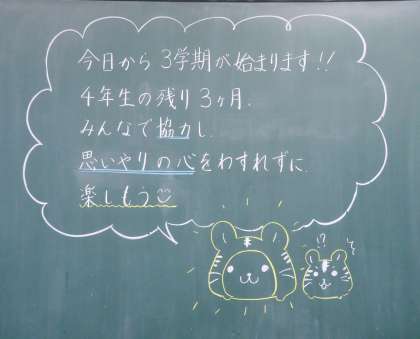 今日から3学期が始まります!!
4年生の残り3ヶ月.
みんなで協力し.
思いやりの心をわすれずに.
楽しもう
!?